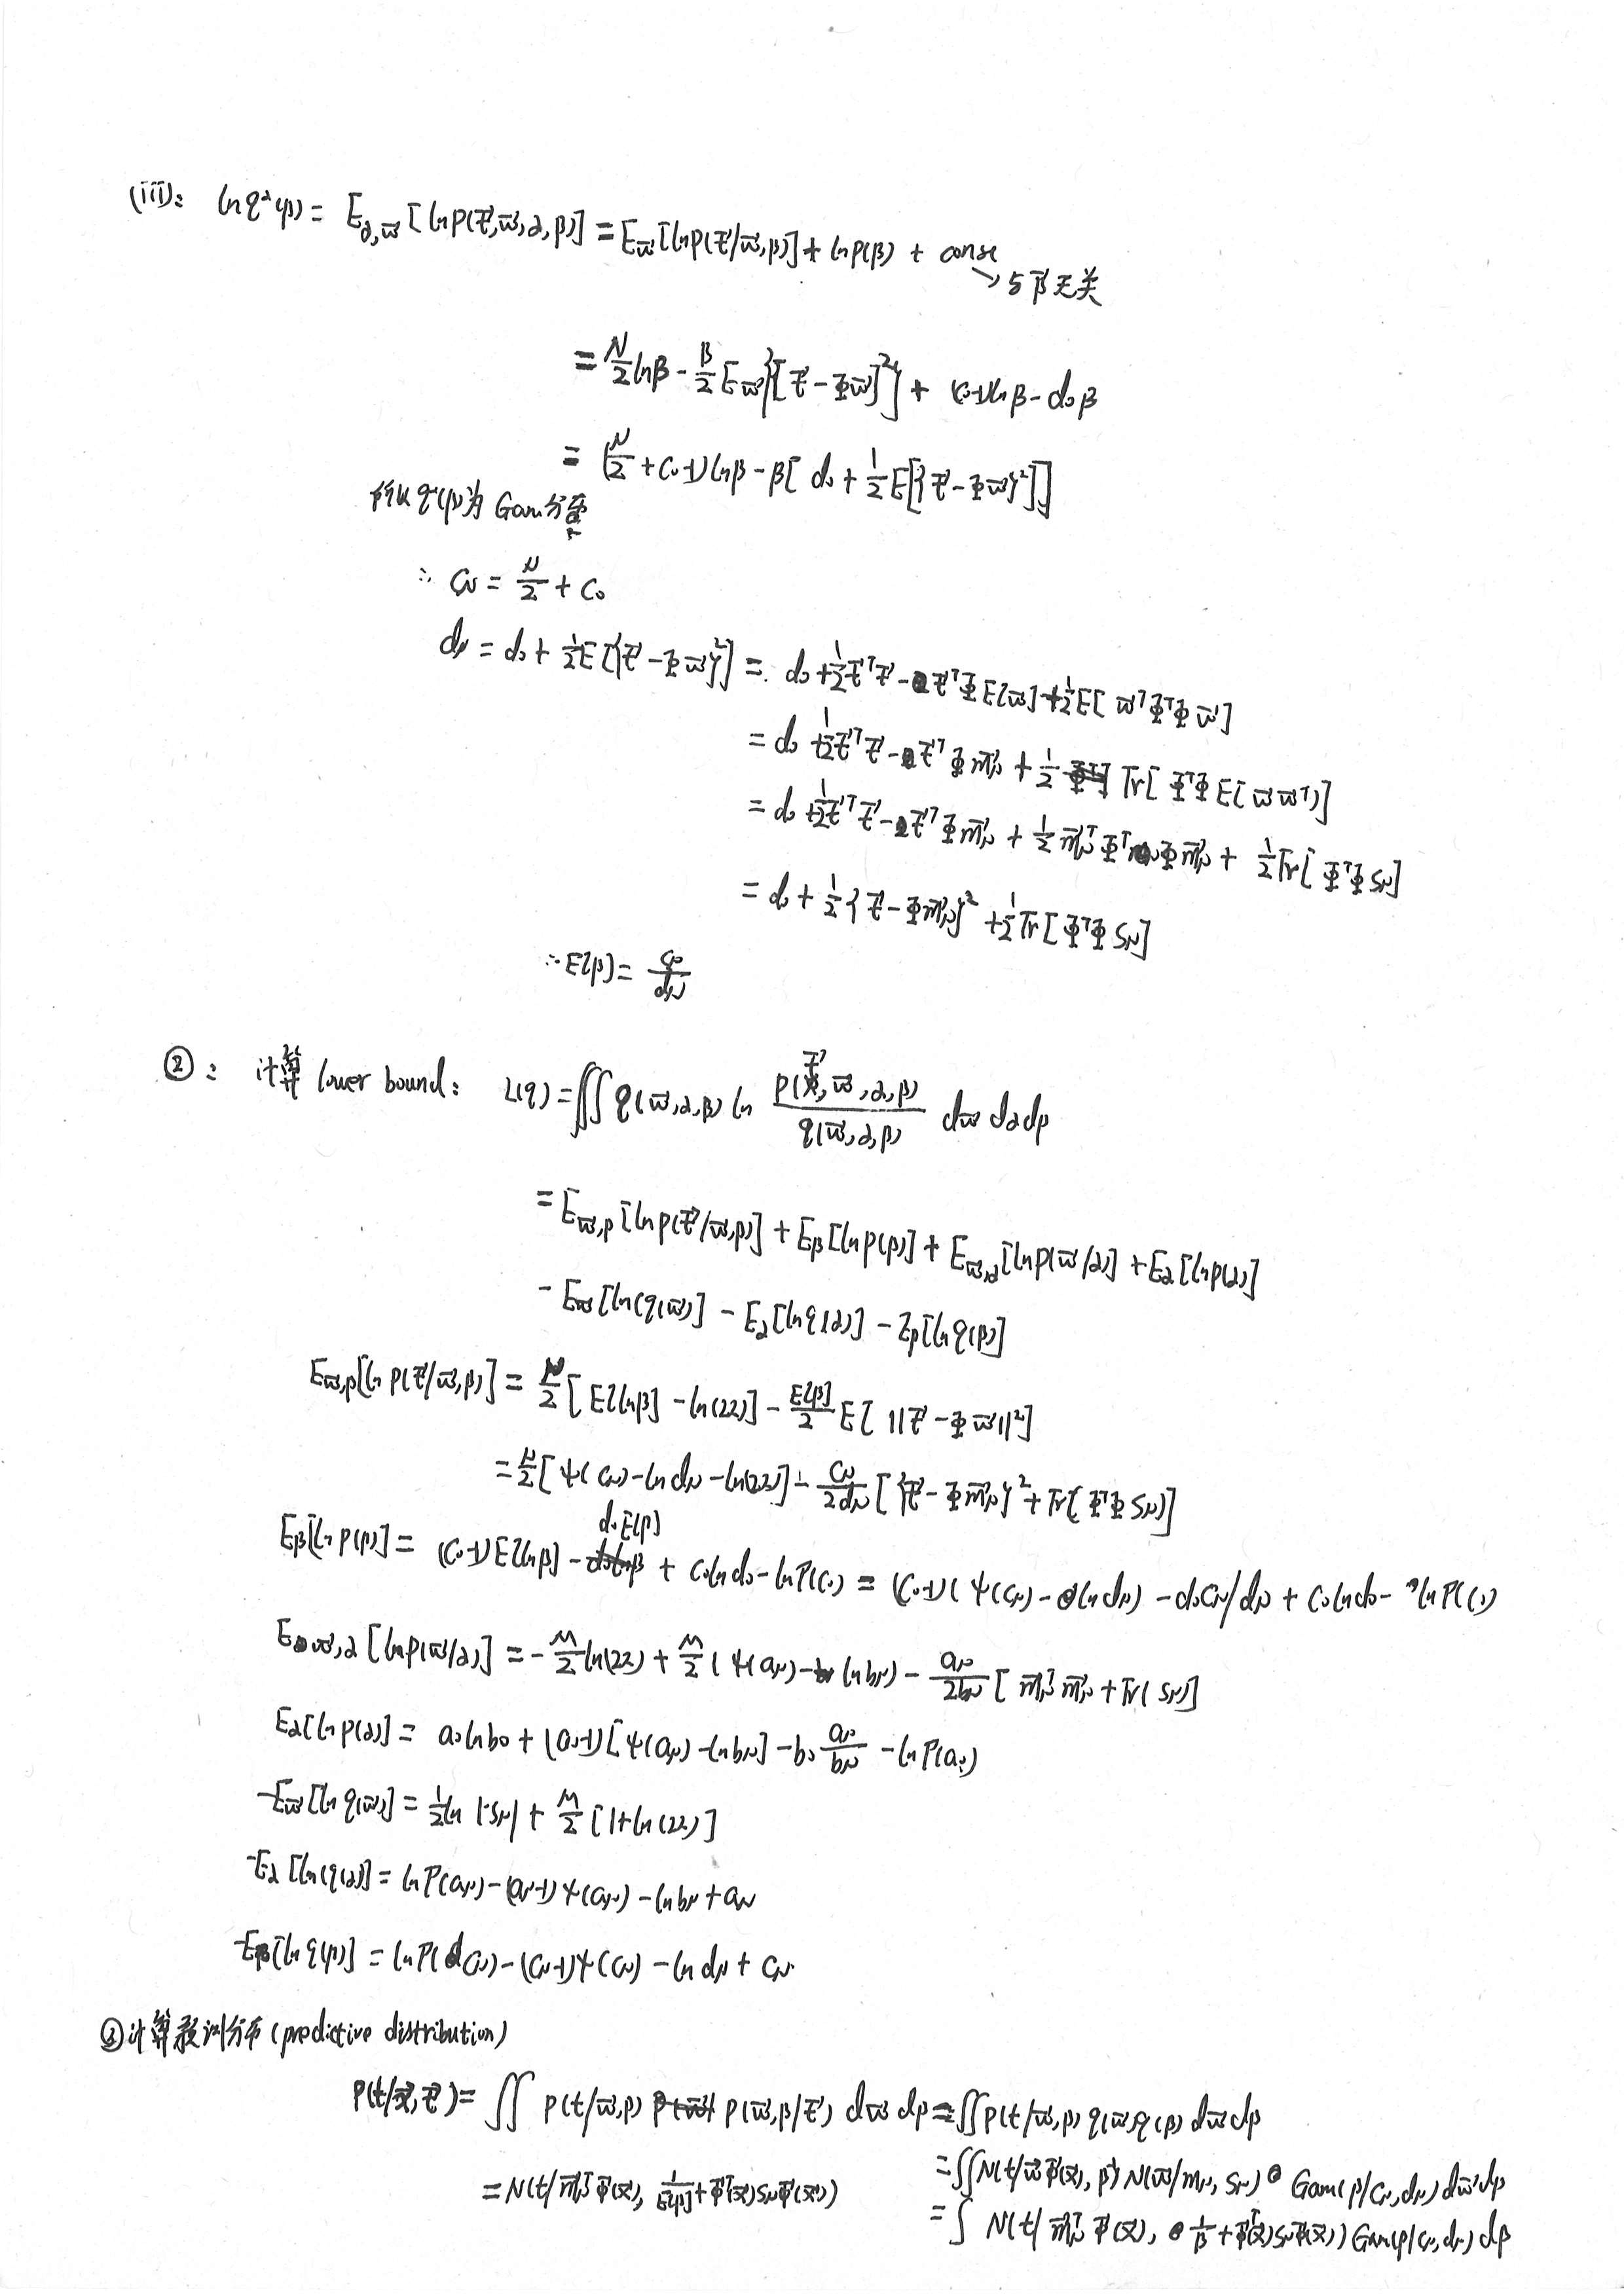 (iii): ln q*(β) = E_{α,w⃗}[ln p(t⃗,w⃗,α,β)] = E_{w⃗}[ln p(t⃗/w⃗,β)] + ln p(β) + const
→ 与β无关
= N/2 lnβ - β/2 E_{w⃗}{[t⃗ - Φw⃗]²} + (c₀-1)lnβ - d₀β
= (N/2 + c₀-1)lnβ - β[d₀ + 1/2 E[{t⃗ - Φw⃗}²]]
所以 q*(β)为 Gam分布
∴ c_N = N/2 + c₀
d_N = d₀ + 1/2 E[{t⃗ - Φw⃗}²] = d₀ + 1/2 t⃗ᵀt⃗ - t⃗ᵀΦE[w⃗] + 1/2 E[w⃗ᵀΦᵀΦw⃗]
= d₀ + 1/2 t⃗ᵀt⃗ - t⃗ᵀΦm⃗_N + 1/2 Tr[ΦᵀΦE(w⃗w⃗ᵀ)]
= d₀ + 1/2 t⃗ᵀt⃗ - t⃗ᵀΦm⃗_N + 1/2 m⃗_NᵀΦᵀΦm⃗_N + 1/2 Tr[ΦᵀΦS_N]
= d₀ + 1/2{t⃗ - Φm⃗_N}² + 1/2 Tr[ΦᵀΦS_N]
∴ E[β] = c_N/d_N
②: 计算 lower bound: L(q) = ∬ q(w⃗,α,β) ln p(t⃗,w⃗,α,β)/q(w⃗,α,β) dw⃗ dα dβ
= E_{w⃗,β}[ln p(t⃗/w⃗,β)] + E_β[ln p(β)] + E_{w⃗,α}[ln p(w⃗/α)] + E_α[ln p(α)]
- E_{w⃗}[ln(q(w⃗)] - E_α[ln q(α)] - E_β[ln q(β)]
E_{w⃗,β}[ln p(t⃗/w⃗,β)] = N/2[E[lnβ] - ln(2π)] - E[β]/2 E[||t⃗ - Φw⃗||²]
= N/2[ψ(c_N) - ln d_N - ln(2π)] - c_N/2d_N[{t⃗ - Φm⃗_N}² + Tr(ΦᵀΦS_N)]
E_β[ln p(β)] = (c₀-1)E[lnβ] - d₀E[β] + c₀ln d₀ - lnΓ(c₀) = (c₀-1)(ψ(c_N) - ln d_N) - d₀c_N/d_N + c₀ln d₀ - lnΓ(c₀)
E_{w⃗,α}[ln p(w⃗/α)] = -M/2 ln(2π) + M/2(ψ(a_N) - ln b_N) - a_N/2b_N[m⃗_Nᵀm⃗_N + Tr(S_N)]
E_α[ln p(α)] = a₀ln b₀ + (a₀-1)[ψ(a_N) - ln b_N] - b₀ a_N/b_N - lnΓ(a₀)
-E_{w⃗}[ln q(w⃗)] = 1/2 ln|S_N| + M/2[1+ln(2π)]
-E_α[ln(q(α)] = lnΓ(a_N) - (a_N-1)ψ(a_N) - ln b_N + a_N
-E_β[ln q(β)] = lnΓ(c_N) - (c_N-1)ψ(c_N) - ln d_N + c_N
③计算预测分布(predictive distribution)
p(t/x⃗,t⃗) = ∬ p(t/w⃗,β) p(w⃗,β/t⃗) dw⃗ dβ = ∬ p(t/w⃗,β) q(w⃗)q(β) dw⃗ dβ
= ∬ N(t/w⃗Φ(x⃗), β⁻¹) N(w⃗/m_N, S_N) Gam(β/c_N,d_N) dw⃗ dβ
= ∫ N(t/m⃗_NᵀΦ(x⃗), 1/β + Φᵀ(x⃗)S_NΦ(x⃗)) Gam(β/c_N,d_N) dβ
= N(t/m⃗_NᵀΦ(x⃗), 1/E[β] + Φᵀ(x⃗)S_NΦ(x⃗))